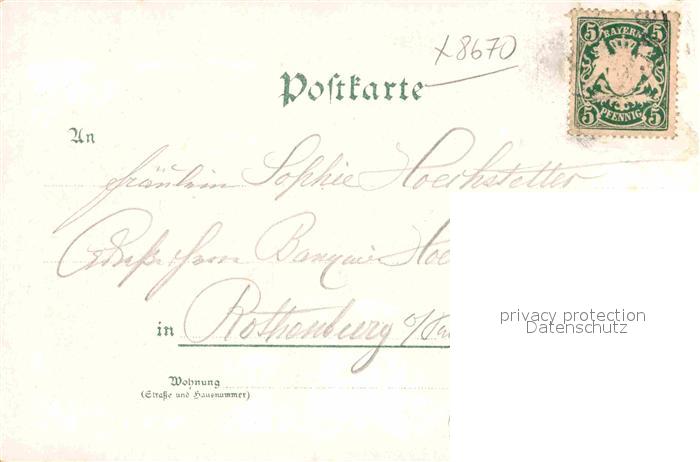 x8670
5 BAYERN 5
5 PFENNIG 5
Postkarte
An
Fräulein Sophie Hoechstetter
Adresse Herrn Banquier Hoe
in Rothenburg o/Tau
privacy protection
Datenschutz
Wohnung
(Straße und Hausnummer)